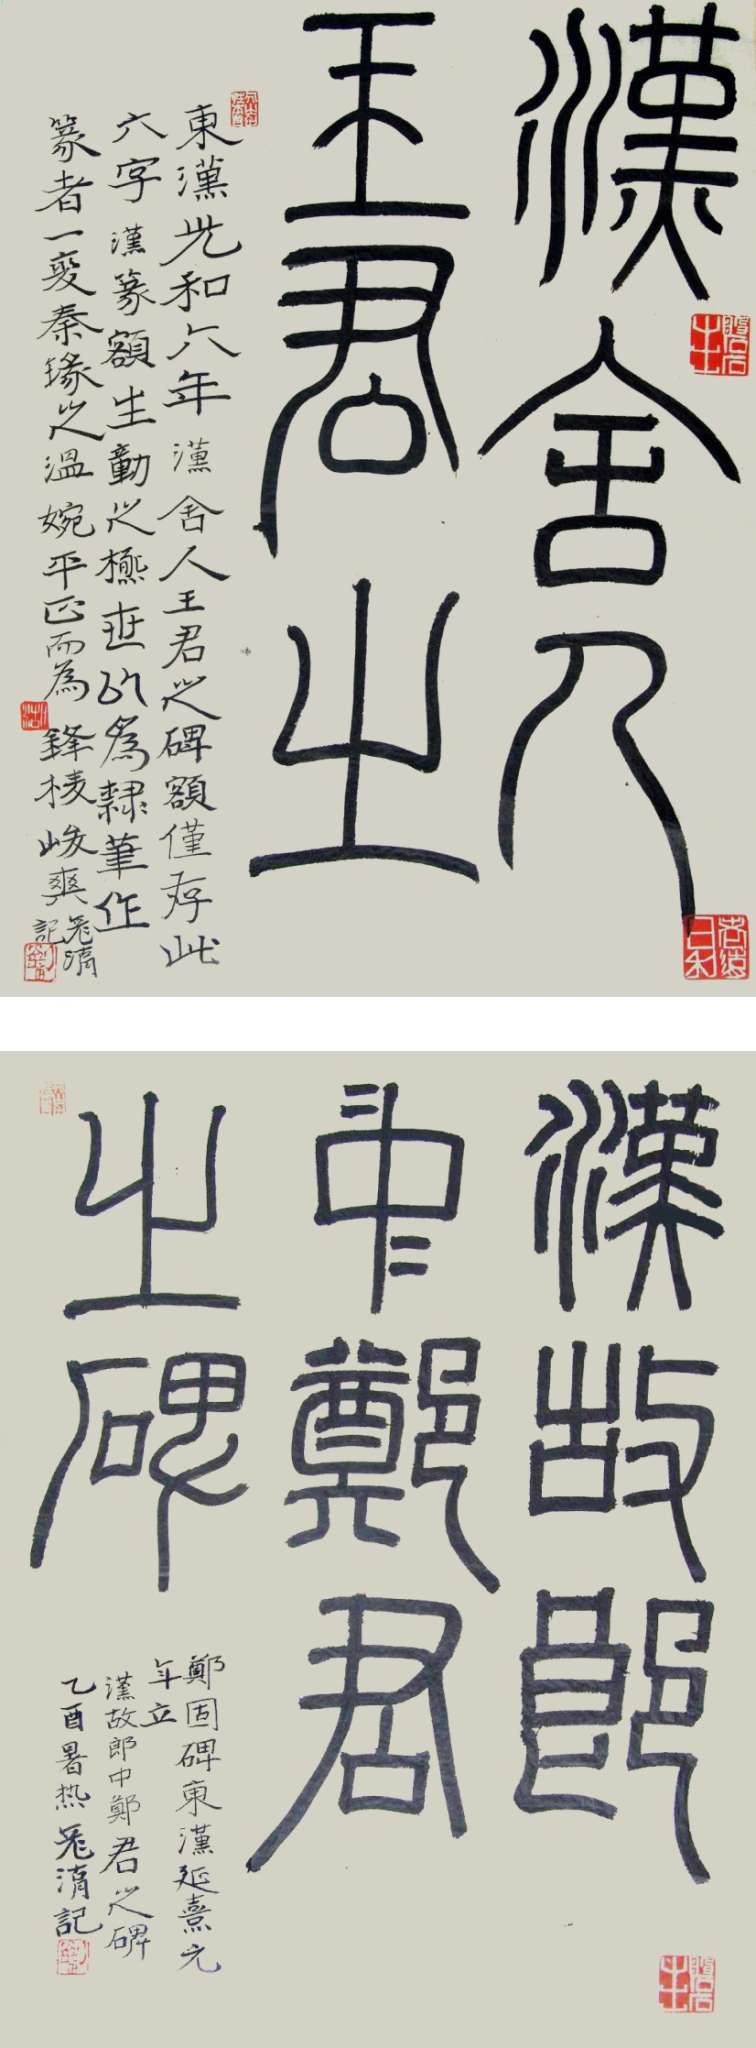 漢舍人
王君之
東漢光和六年漢舍人王君之碑額僅存此
六字漢篆額生動之極世以為隸筆作
篆者一變秦篆之溫婉平正而為鋒棱峻爽
記
漢故郎
中鄭君
之碑
鄭固碑東漢延熹元
年立
漢故郎中鄭君之碑
乙酉暑热
記